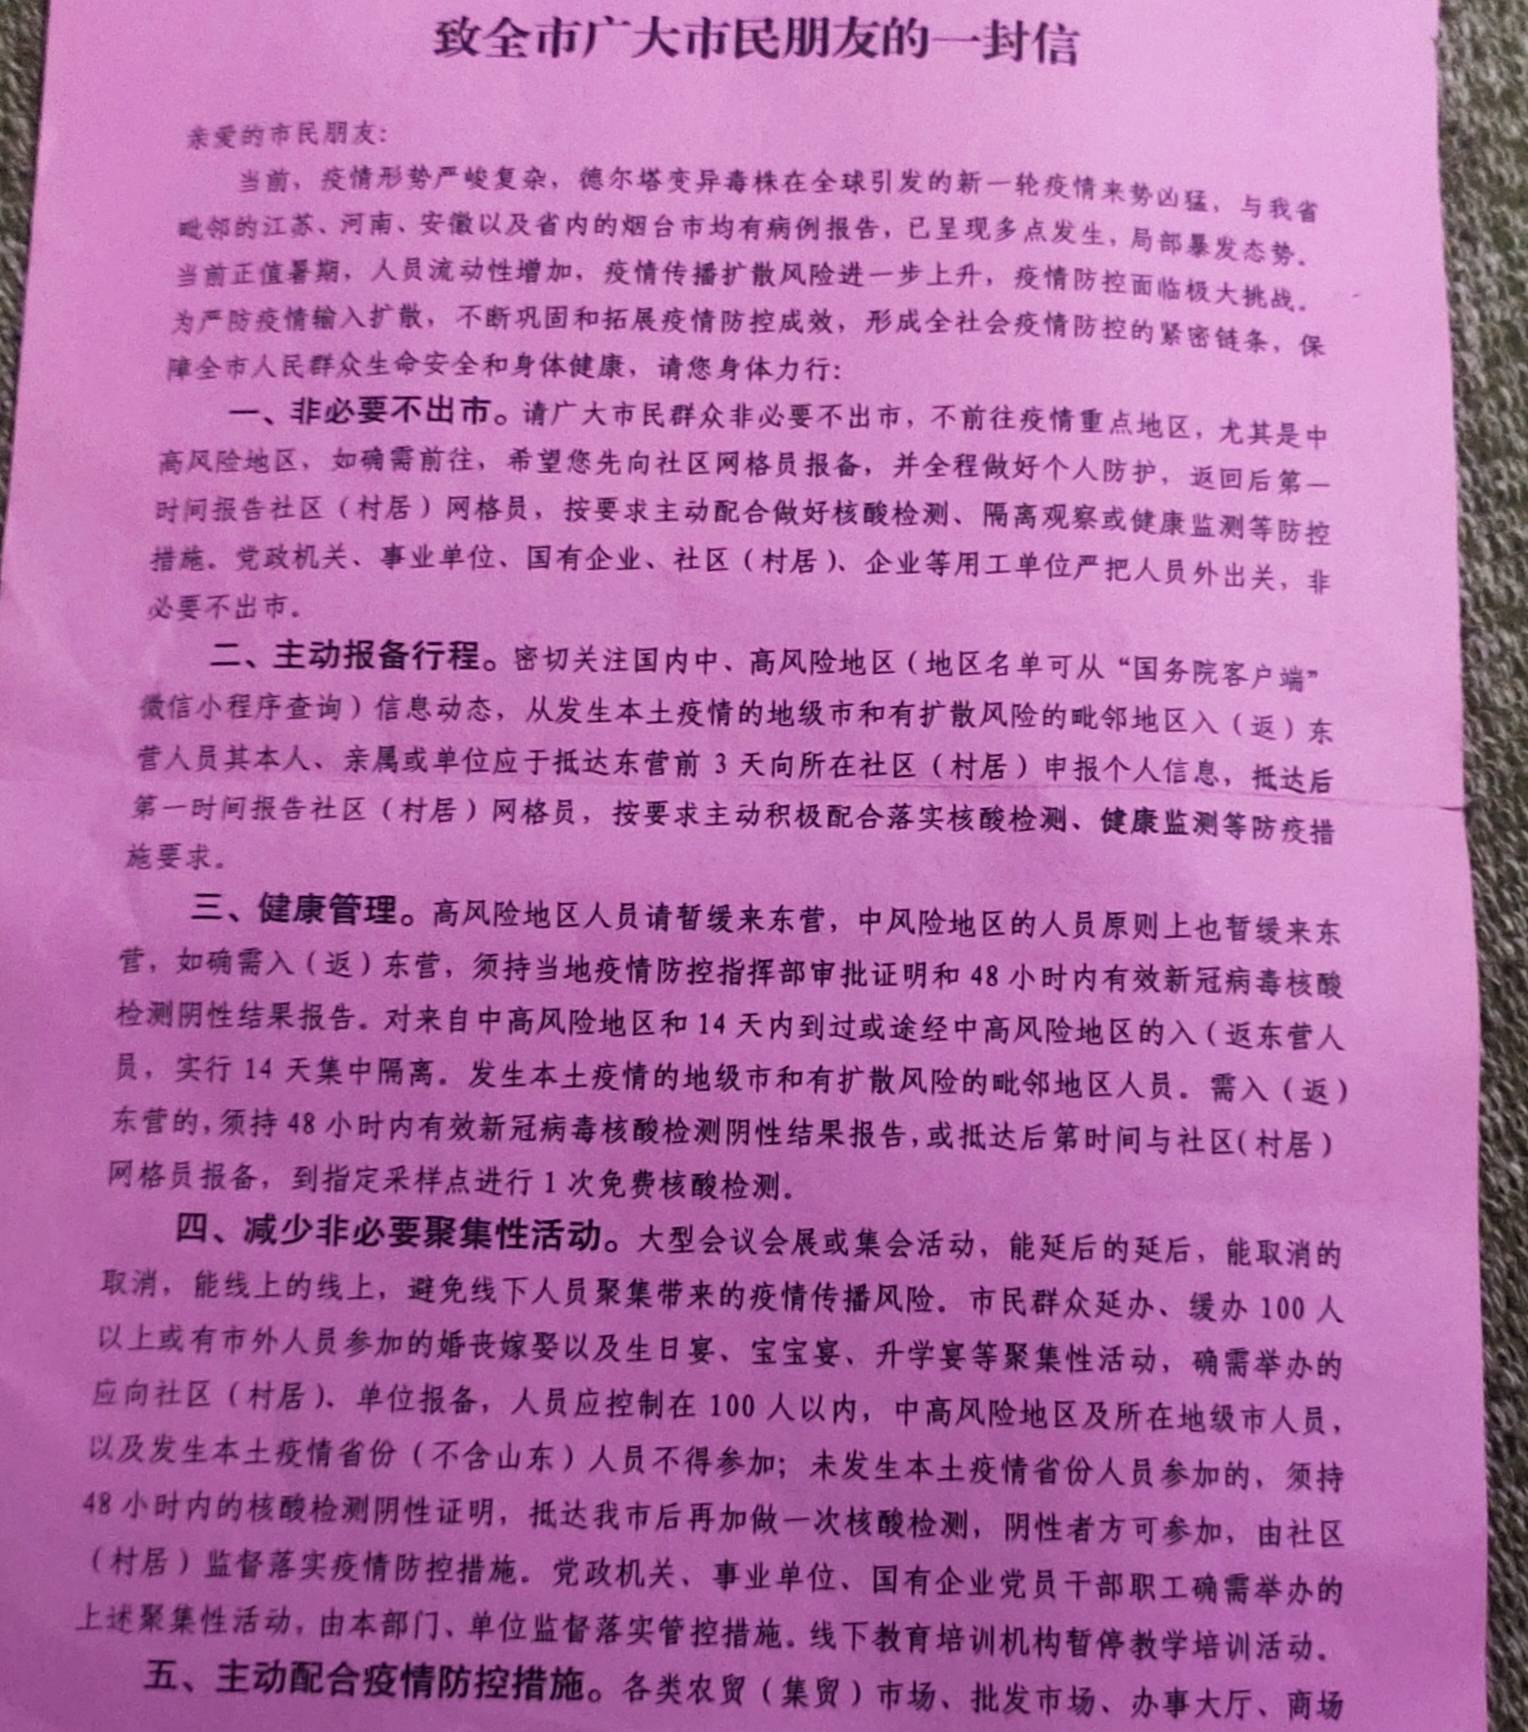 致全市广大市民朋友的一封信
亲爱的市民朋友：
当前，疫情形势严峻复杂，德尔塔变异毒株在全球引发的新一轮疫情来势凶猛，与我省
毗邻的江苏、河南、安徽以及省内的烟台市均有病例报告，已呈现多点发生，局部暴发态势。
当前正值暑期，人员流动性增加，疫情传播扩散风险进一步上升，疫情防控面临极大挑战。
为严防疫情输入扩散，不断巩固和拓展疫情防控成效，形成全社会疫情防控的紧密链条，保
障全市人民群众生命安全和身体健康，请您身体力行：
一、非必要不出市。请广大市民群众非必要不出市，不前往疫情重点地区，尤其是中
高风险地区，如确需前往，希望您先向社区网格员报备，并全程做好个人防护，返回后第一
时间报告社区（村居）网格员，按要求主动配合做好核酸检测、隔离观察或健康监测等防控
措施。党政机关、事业单位、国有企业、社区（村居）、企业等用工单位严把人员外出关，非
必要不出市。
二、主动报备行程。密切关注国内中、高风险地区（地区名单可从“国务院客户端”
微信小程序查询）信息动态，从发生本土疫情的地级市和有扩散风险的毗邻地区入（返）东
营人员其本人、亲属或单位应于抵达东营前 3 天向所在社区（村居）申报个人信息，抵达后
第一时间报告社区（村居）网格员，按要求主动积极配合落实核酸检测、健康监测等防疫措
施要求。
三、健康管理。高风险地区人员请暂缓来东营，中风险地区的人员原则上也暂缓来东
营，如确需入（返）东营，须持当地疫情防控指挥部审批证明和 48 小时内有效新冠病毒核酸
检测阴性结果报告。对来自中高风险地区和 14 天内到过或途经中高风险地区的入（返东营人
员，实行 14 天集中隔离。发生本土疫情的地级市和有扩散风险的毗邻地区人员。需入（返）
东营的，须持 48 小时内有效新冠病毒核酸检测阴性结果报告，或抵达后第时间与社区（村居）
网格员报备，到指定采样点进行 1 次免费核酸检测。
四、减少非必要聚集性活动。大型会议会展或集会活动，能延后的延后，能取消的
取消，能线上的线上，避免线下人员聚集带来的疫情传播风险。市民群众延办、缓办 100 人
以上或有市外人员参加的婚丧嫁娶以及生日宴、宝宝宴、升学宴等聚集性活动，确需举办的
应向社区（村居）、单位报备，人员应控制在 100 人以内，中高风险地区及所在地级市人员，
以及发生本土疫情省份（不含山东）人员不得参加；未发生本土疫情省份人员参加的，须持
48 小时内的核酸检测阴性证明，抵达我市后再加做一次核酸检测，阴性者方可参加，由社区
（村居）监督落实疫情防控措施。党政机关、事业单位、国有企业党员干部职工确需举办的
上述聚集性活动，由本部门、单位监督落实管控措施。线下教育培训机构暂停教学培训活动。
五、主动配合疫情防控措施。各类农贸（集贸）市场、批发市场、办事大厅、商场